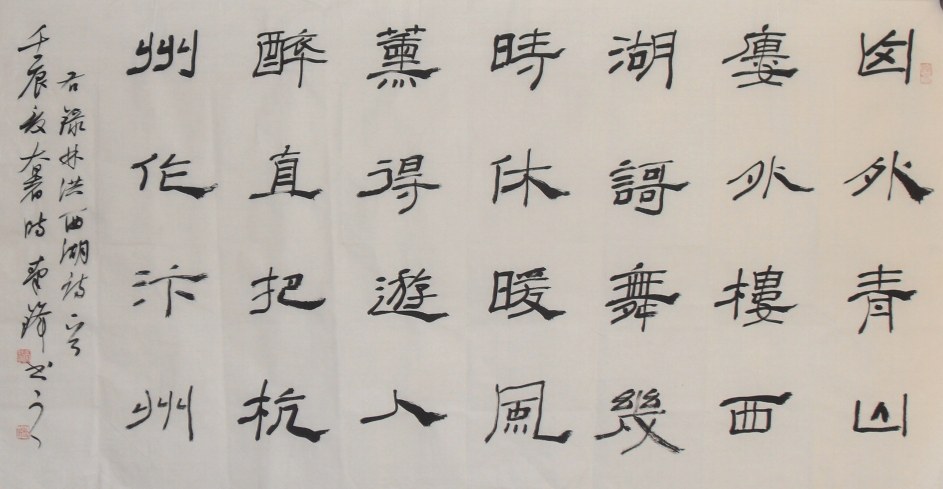 山外青山
廔外樓西
湖謌舞幾
時休暖風
薰得遊人
醉直把杭
州作汴州
右錄林洪西湖詩一首
壬辰夏大暑時鋒書